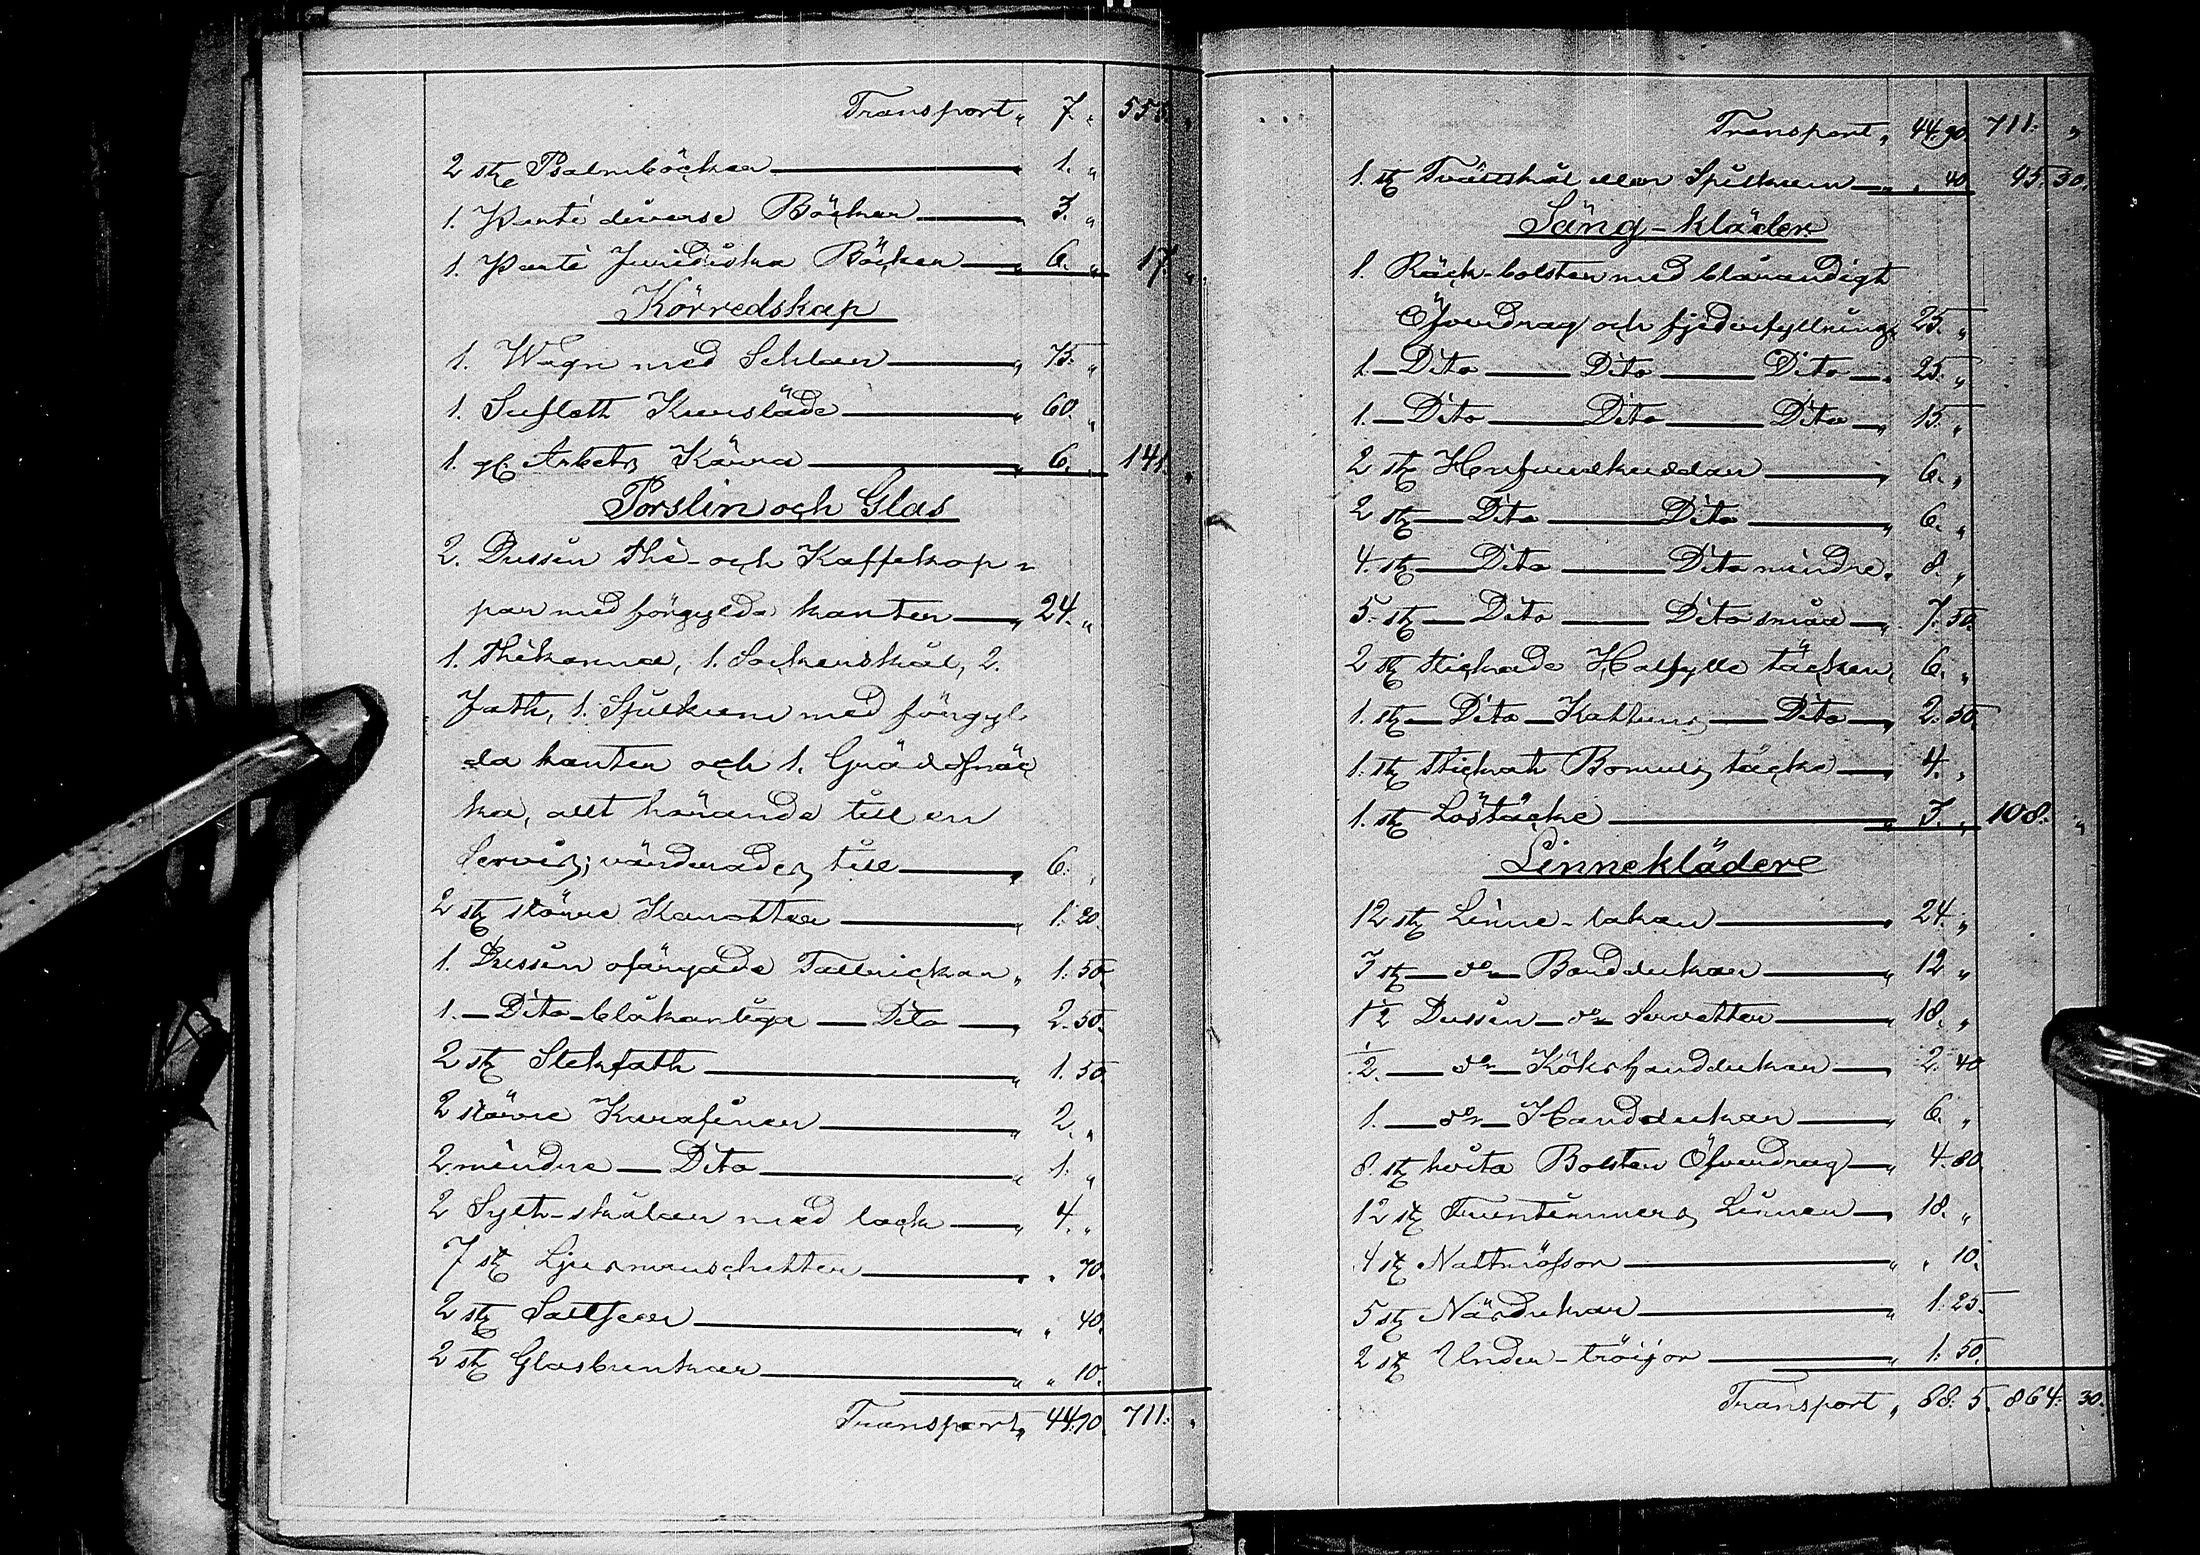 Transport „ 7. „ 553. „
2 st. Psalmböcker „ 1. „
1. Parti diverse Böcker „ 3. „
1. Parti Juridiska Böcker „ 6. „ 17. „
Körredskap
1. Wagn med Schlar „ 75. „
1. Sufflett Kursläde „ 60. „
1. gl. Arbets Kärra „ 6. „ 141. „
Porslin och Glas
2. Dussin Thé- och Kaffekop=
par med förgylda kanter „ 24. „
1. Thékanna, 1. Sockerskål, 2.
Fath, 1. Spilkum med förgyl
da kanter och 1. Gräddsnäc
ka, allt hörande till en
Servis; värderades till „ 6. „
2 st. större Karotter „ 1. 20.
1. Dussin ofärgade Tallrickar „ 1. 50.
1. Dito blåkantiga Dito „ 2. 50.
2 st. Stekfath „ 1. 50.
2 större Karafiner „ 2. „
2. mindre Dito „ 1. „
2 Sylt-skålar med lock „ 4. „
7 st. Ljusmanschetter „ „ 70.
2 st. Saltkar „ „ 40.
2 st. Glasburkar „ „ 10.
Transport „ 44. 90. 711. „
Transport „ 44. 90. 711. „
1. st. Tvättskål eller Spilkum „ „ 40 45. 30.
Säng-kläder
1. Räck-bolster med blårandigt
Öfverdrag och fjederfyllning „ 25. „
1. Dito Dito Dito „ 25. „
1. Dito Dito Dito „ 15. „
2 st. Hufvudkuddar „ 6. „
2 st. Dito Dito „ 6. „
4. st. Dito Dito mindre „ 8. „
5. st. Dito Dito små „ 7. 50.
2 st. stickade Halfylle täcken „ 6. „
1. st. Dito Kattuns Dito „ 2. 50.
1. st. stickat Bomuls täcke „ 4. „
1. st. Löstäcke „ 3. „ 108. „
Linnekläder
12 st. Linne-lakan „ 24. „
3 st. do Borddukar „ 12 „
1 1/2 Dussin do Servetter „ 18. „
1/2. do Kökshanddukar „ 2. 40
1. do Handdukar „ 6. „
8. st. hvita Bolster Öfverdrag „ 4. 80.
12 st. Fruntimmers Linnen „ 18. „
4 st. Nattmössor „ „ 10.
5 st. Näsdukar „ 1. 25.
2 st. Under-tröijor „ 1. 50.
Transport „ 88. 5. 864. 30.